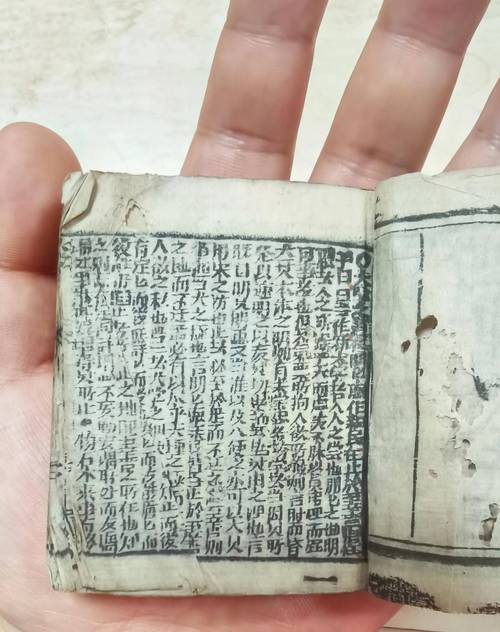 ○大學之道在明明德在親民在止於至善程
子曰親當作新大學者大人之學也明明之也明
德者人之所得乎天而虛靈不昧以具眾理而應
萬事者也但爲氣稟所拘人欲所蔽則有時而昏
然其本體之明則有未嘗息者故學者當因其所
發而遂明之以復其初也新者革其舊之謂也言
既自明其明德又當推以及人使之亦有以去其
舊染之汙也止者必至於是而不遷之意至善則
事理當然之極也言明明德新民皆當止於至善
之地而不遷蓋必有以盡夫天理之極而無一毫
人欲之私也此三者大學之綱領也知止而後
有定定而後能靜靜而後能安安而後能慮慮而
後能得止者所當止之地即至善之所在也知
之則志有定向靜謂心不妄動安謂所處而安慮
謂處事精詳得謂得其所止 物有本末事有終
一